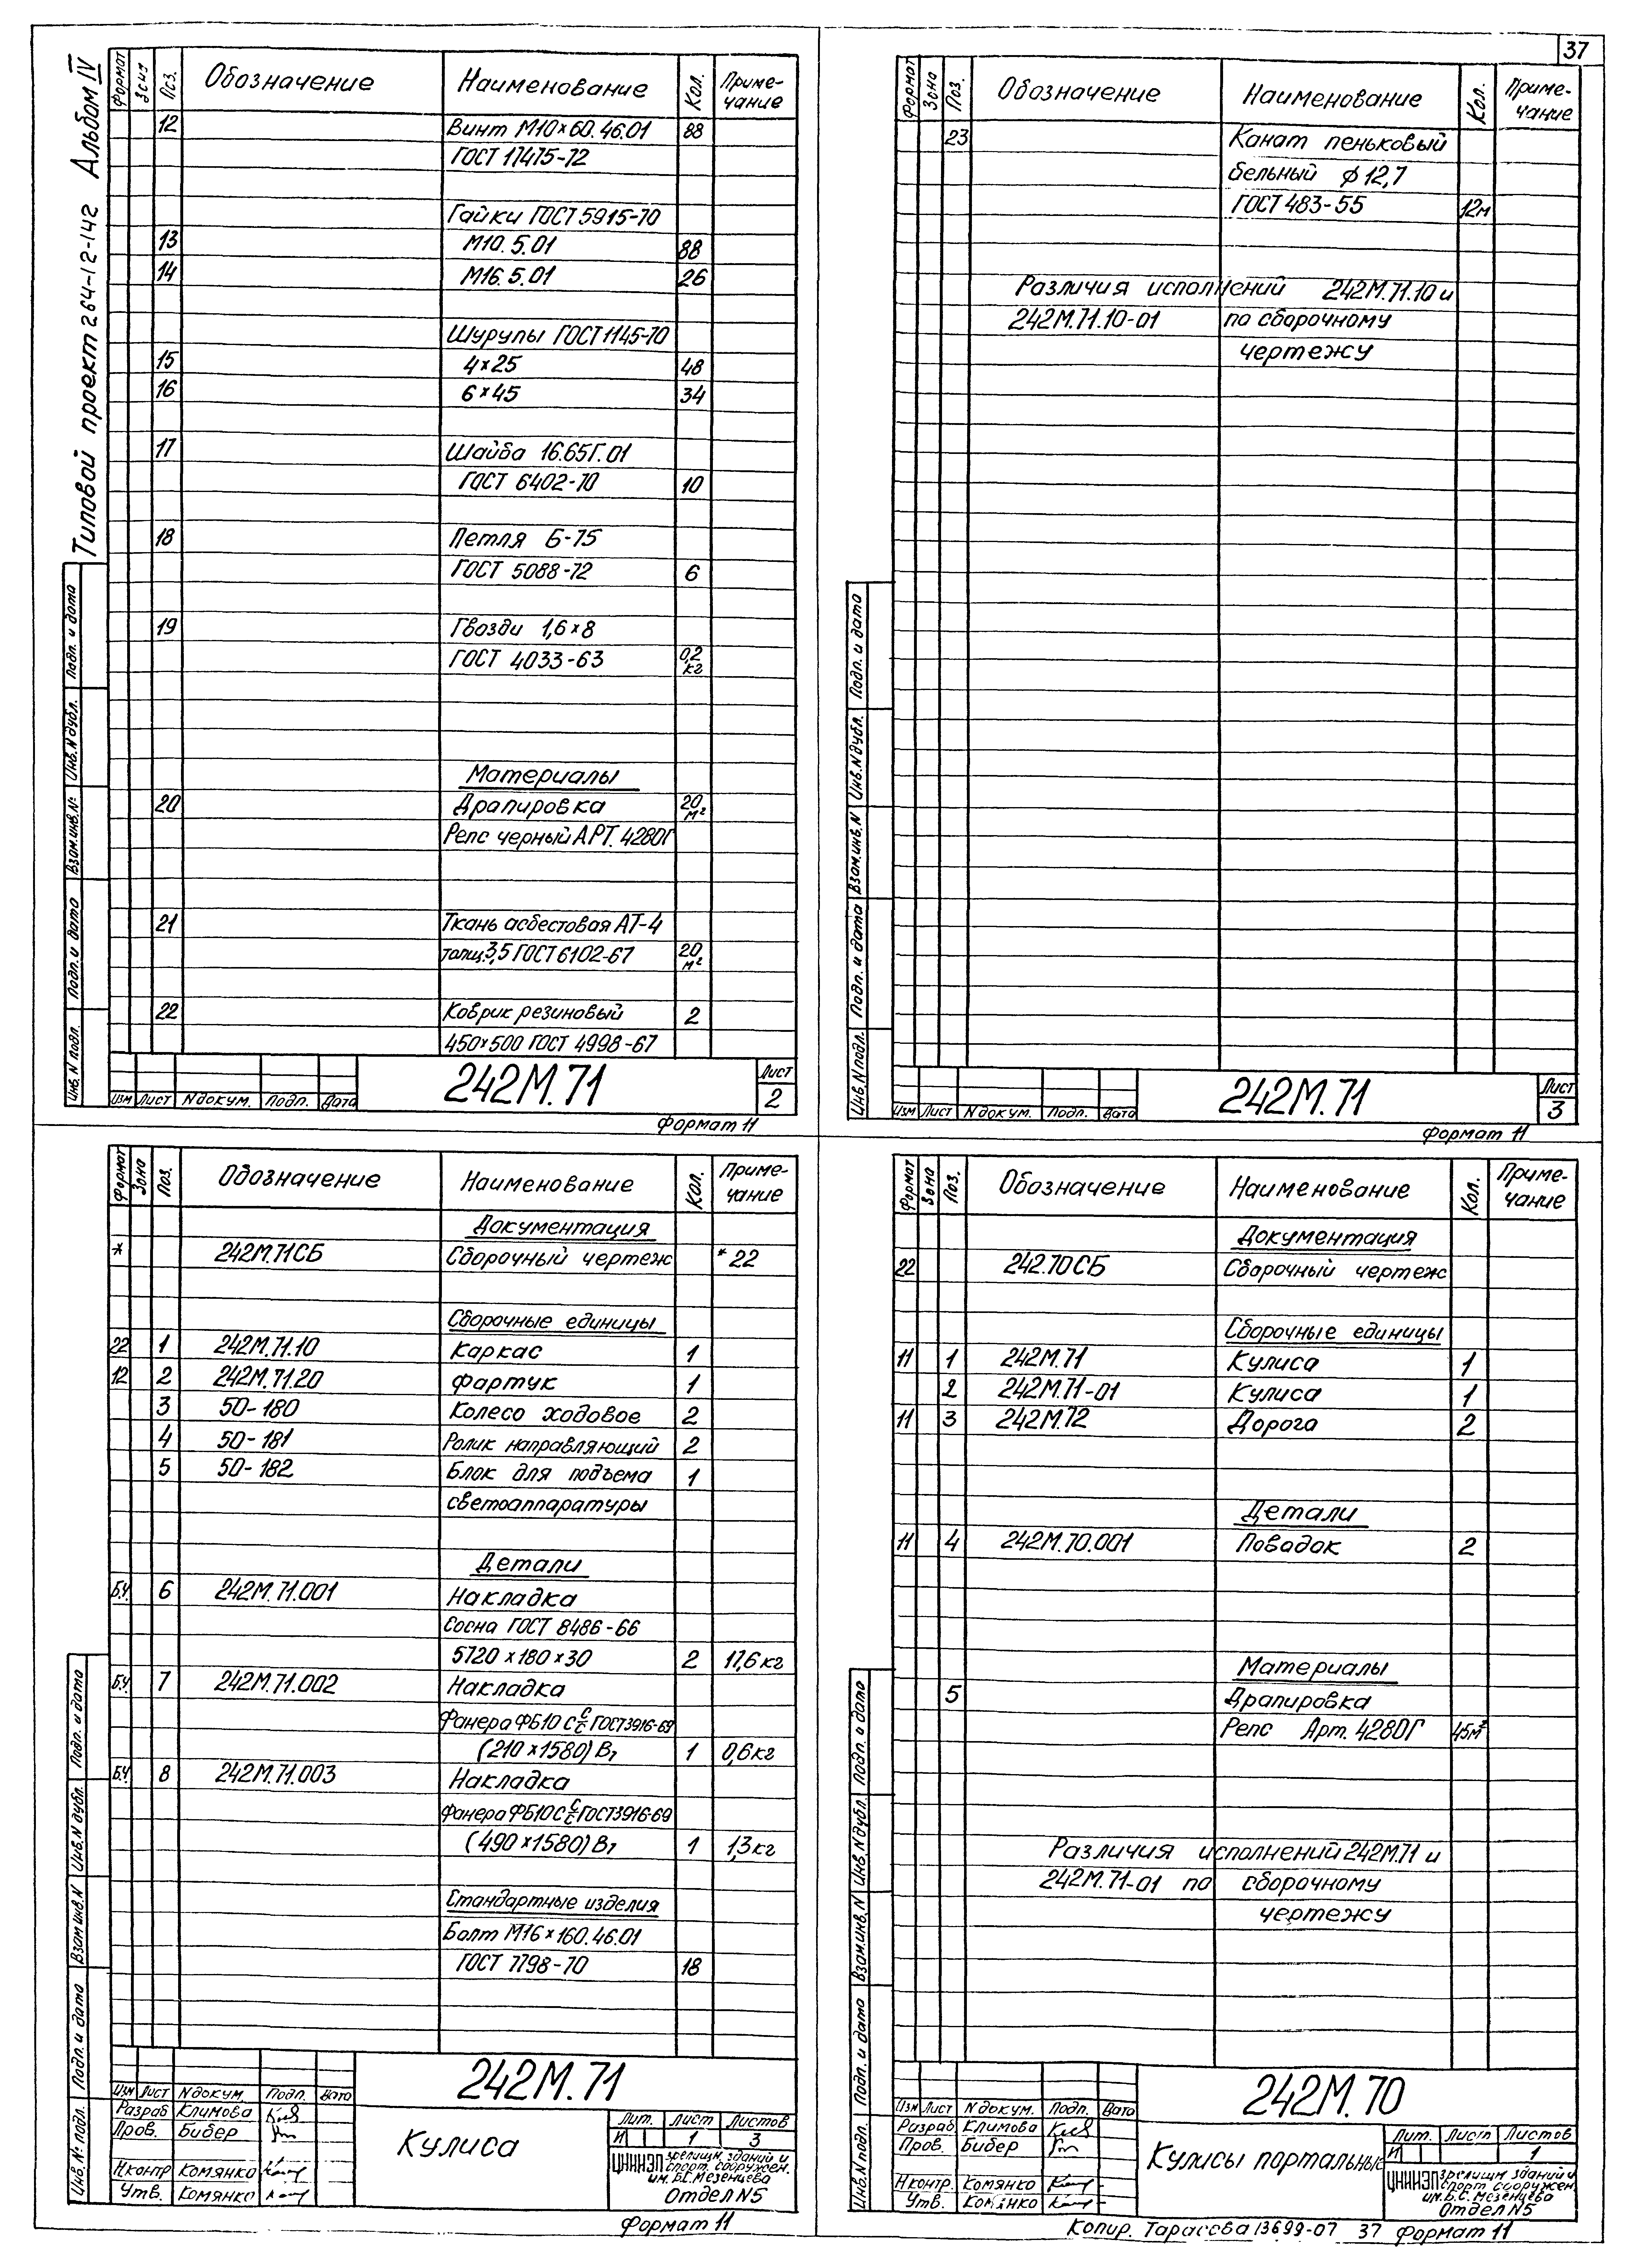 37
Типовой проект 264-12-142 Альбом IV
Формат Зона Поз. Обозначение Наименование Кол. Приме-
чание
12 Винт М10×60.46.01 88
ГОСТ 17475-72
Гайки ГОСТ 5915-70
13 М10.5.01 88
14 М16.5.01 26
Шурупы ГОСТ 1145-70
15 4×25 48
16 6×45 34
17 Шайба 16.65Г.01
ГОСТ 6402-70 10
18 Петля Б-75
ГОСТ 5088-72 6
19 Гвозди 1,6×8
ГОСТ 4033-63 0,2
кг
Материалы
20 Драпировка 20
м²
Репс черный АРТ. 4280Г
21 Ткань асбестовая АТ-4
толщ. 3,5 ГОСТ 6102-67 20
м²
22 Коврик резиновый 2
450×500 ГОСТ 4998-67
Инв. N подл. Подп. и дата Взам.инв.№ Инв. N дубл. Подп. и дата
242М.71
Лист
2
Изм Лист N докум. Подп. Дата
Формат 11
Формат Зона Поз. Обозначение Наименование Кол. Приме-
чание
23 Канат пеньковый
бельный ф 12,7
ГОСТ 483-55 12м
Различия исполнений 242М.71.10 и
242М.71.10-01 по сборочному
чертежу
Инв. N подл. Подп. и дата Взам.инв.N Инв. N дубл. Подп. и дата
242М.71
Лист
3
Изм Лист N докум. Подп. Дата
Формат 11
Формат Зона Поз. Обозначение Наименование Кол. Приме-
чание
Документация
* 242М.71СБ Сборочный чертеж *22
Сборочные единицы
22 1 242М.71.10 Каркас 1
12 2 242М.71.20 Фартук 1
3 50-180 Колесо ходовое 2
4 50-181 Ролик направляющий 2
5 50-182 Блок для подъема 1
светоаппаратуры
Детали
Б.Ч. 6 242М.71.001 Накладка
Сосна ГОСТ 8486-66
5720×180×30 2 17,6 кг
Б.Ч. 7 242М.71.002 Накладка
Фанера ФБ10 С с/с ГОСТ 3916-69
(210×1580) В₇ 1 0,6 кг
Б.Ч. 8 242М.71.003 Накладка
Фанера ФБ10 С с/с ГОСТ 3916-69
(490×1580) В₇ 1 1,3 кг
Стандартные изделия
Болт М16×160.46.01
ГОСТ 7798-70 18
Инв. № подл. Подп. и дата Взам инв. N Инв. N дубл. Подп. и дата
242М.71
Изм Лист N докум Подп. Дата
Разраб Климова
Пров. Бидер
Н контр Комянко
Утв. Комянко
Кулиса
Лит. Лист Листов
И 1 3
ЦНИИЭП зрелищн. зданий и
спорт. сооружен.
им. Б.С. Мезенцева
Отдел N5
Формат 11
Формат Зона Поз. Обозначение Наименование Кол. Приме-
чание
Документация
22 242.70СБ Сборочный чертеж
Сборочные единицы
11 1 242М.71 Кулиса 1
2 242М.71-01 Кулиса 1
11 3 242М.72 Дорога 2
Детали
11 4 242М.70.001 Повадок 2
Материалы
5 Драпировка
Репс Арт. 4280Г 45м²
Различия исполнений 242М.71 и
242М.71-01 по сборочному
чертежу
Инв. N подл. Подп. и дата Взам.инв.N Инв. N дубл. Подп. и дата
242М.70
Изм Лист N докум. Подп. Дата
Разраб. Климова
Пров. Бидер
Н контр. Комянко
Утв. Комянко
Кулисы портальные
Лит. Лист Листов
И 1
ЦНИИЭП зрелищн зданий и
спорт сооружен.
им. Б.С. Мезенцева
Отдел N5
Копир. Тарасова 13699-07 37 Формат 11